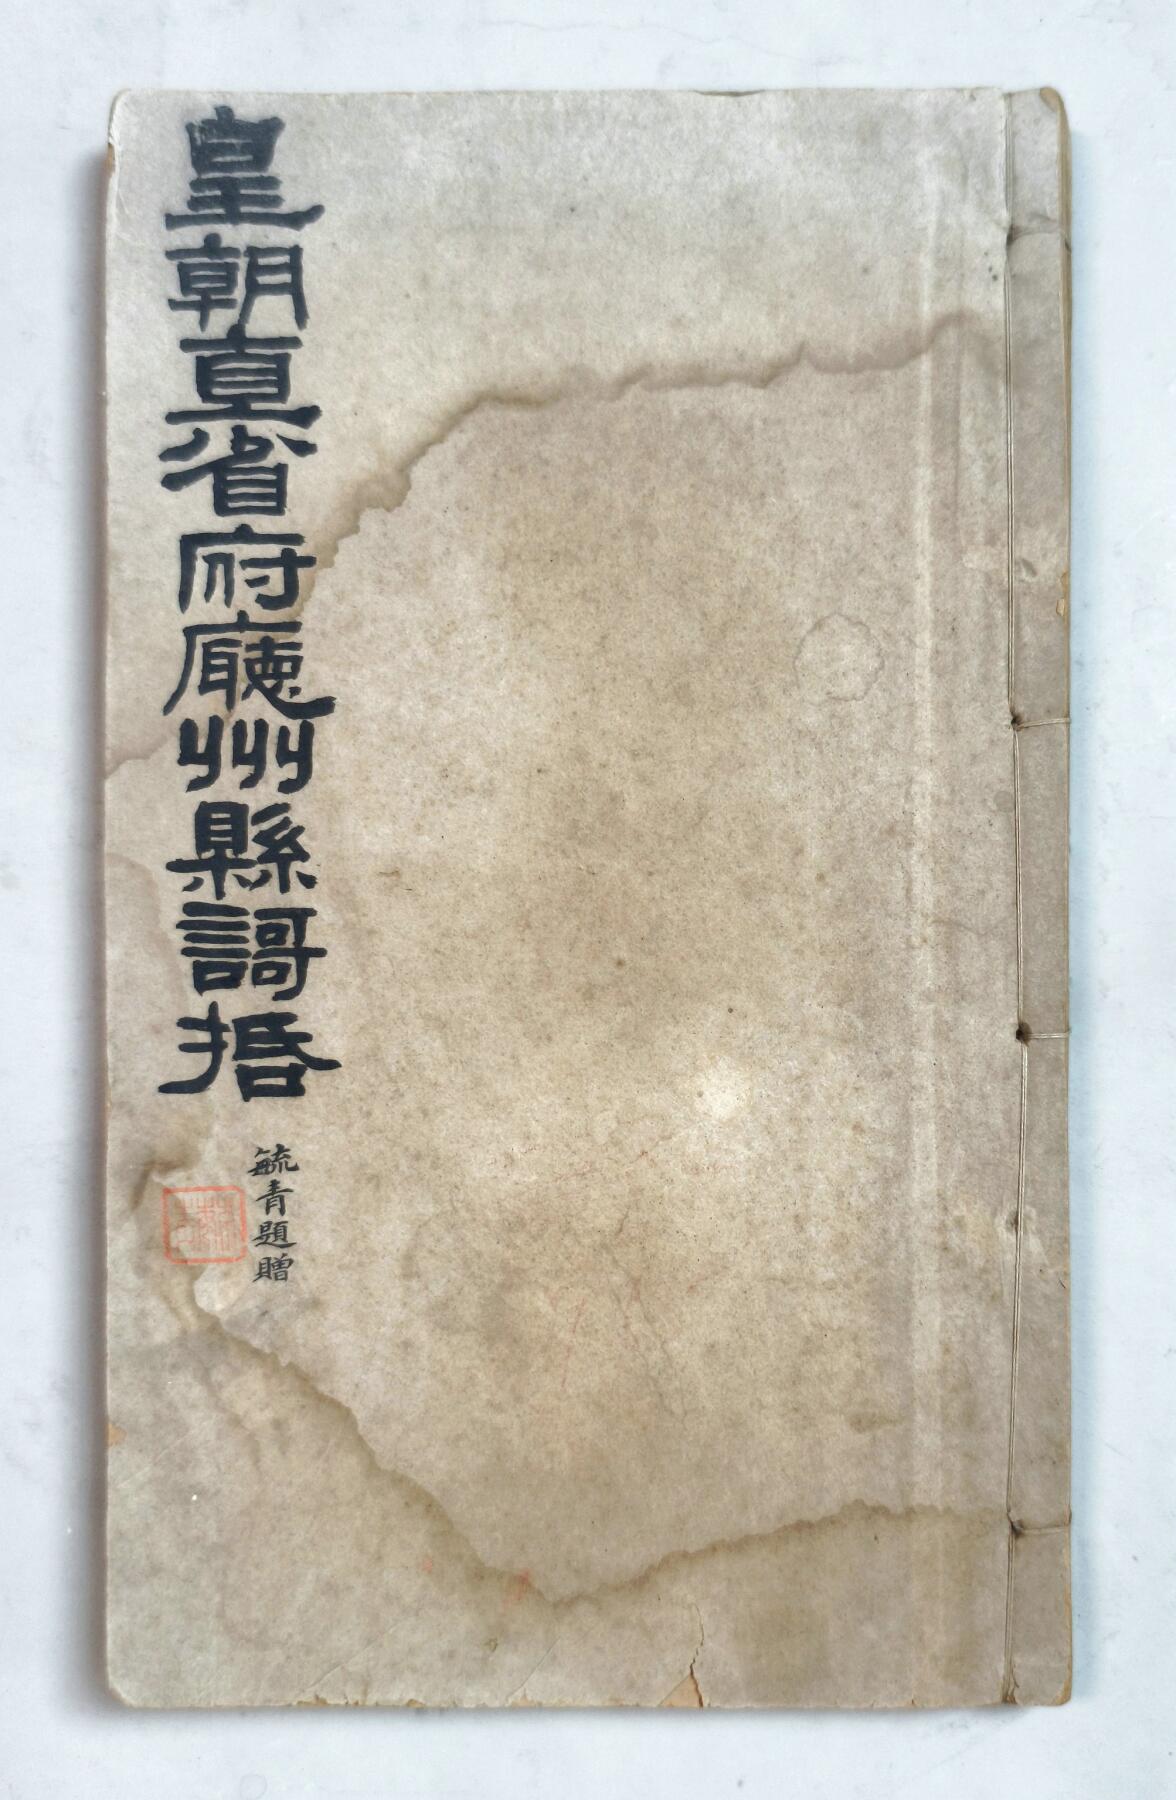 皇朝直省府廳州縣謌括
毓青題贈